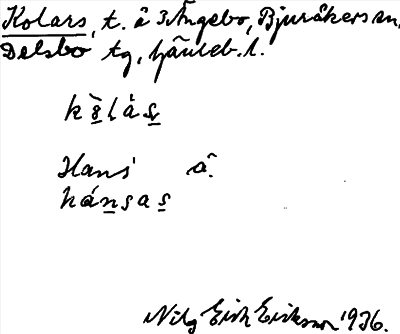 Kolars, t. å 3 Ängebo, Bjuråkers sn,
Delsbo tg, Hälsingl.
kò̤lás̲
Hans' å.
hán̲sas̲
Nils Erik Eriksson 1936.